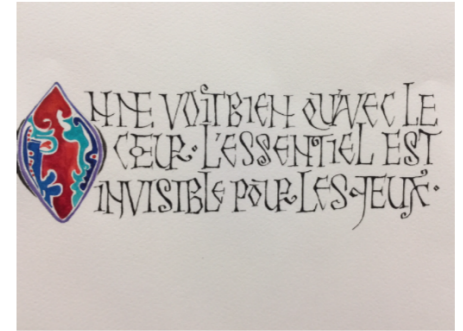 ON NE VOIT BIEN QU'AVEC LE
CŒUR · L'ESSENTIEL EST
INVISIBLE POUR LES YEUX ·